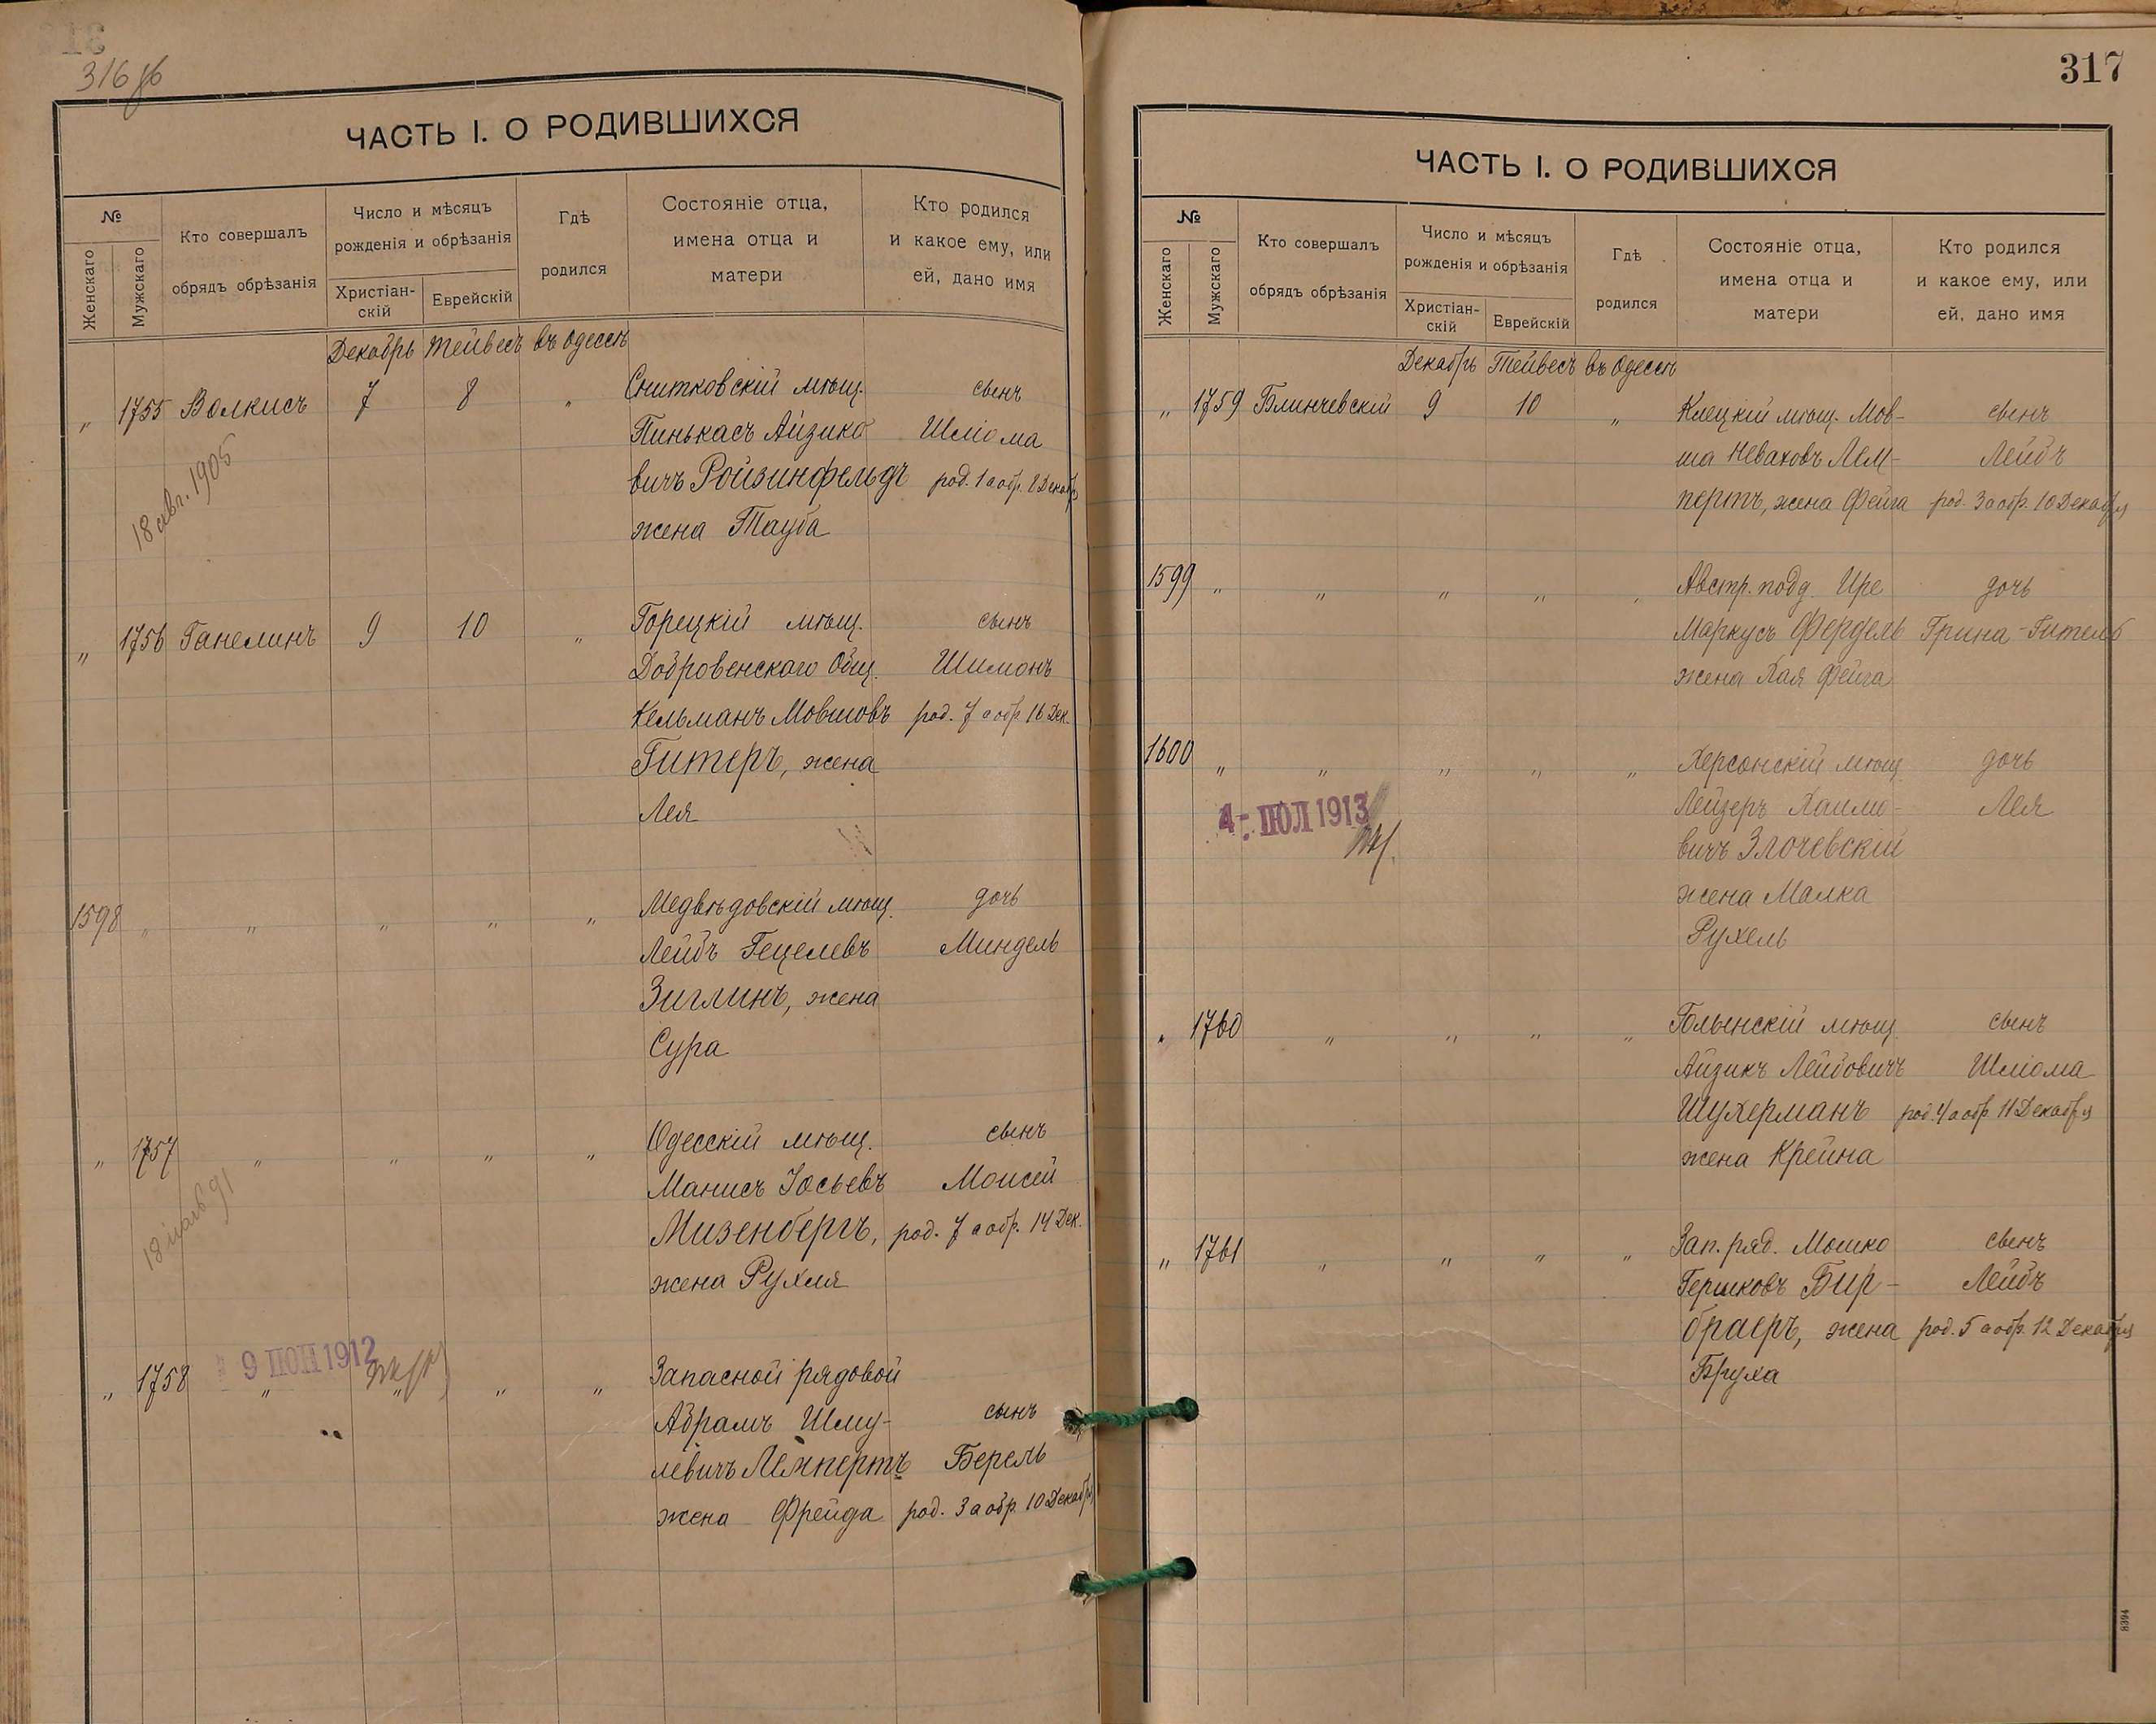 316 об
ЧАСТЬ I. О РОДИВШИХСЯ
№
Женскаго
Мужскаго
Кто совершалъ
обрядъ обрѣзанія
Число и мѣсяцъ
рожденія и обрѣзанія
Христіан-
скій
Еврейскій
Гдѣ
родился
Состояніе отца,
имена отца и
матери
Кто родился
и какое ему, или
ей, дано имя
Декабрь Тейвесъ въ Одессѣ
„ 1755 Волкисъ 7 8 „ Снитковскій мѣщ. сынъ
Пинькасъ Айзико Шліома
вичъ Ройзинфельдъ род. 1 а обр. 8 Декабр
жена Тауба
18 авг. 1905
„ 1756 Ганелинъ 9 10 „ Горецкій мѣщ. сынъ
Добровенскаго Общ. Шимонъ
Кельманъ Мовшовъ род. 7 а обр. 16 Дек.
Гитеръ, жена
Лея
1598 „ „ „ „ „ Медвѣдовскій мѣщ. дочь
Лейбъ Гецелевъ Миндель
Зиглинъ, жена
Сура
„ 1757 „ „ „ „ Одесскій мѣщ. сынъ
Манисъ Іосьевъ Моисей
Мизенбергъ, род. 7 а обр. 14 Дек.
жена Рухля
9 ІЮН 1912
„ 1758 „ „ „ „ Запасной рядовой
Абрамъ Шму- сынъ
левичъ Лемпертъ Берель
жена Фрейда род. 3 а обр. 10 Декабр
317
ЧАСТЬ I. О РОДИВШИХСЯ
№
Женскаго
Мужскаго
Кто совершалъ
обрядъ обрѣзанія
Число и мѣсяцъ
рожденія и обрѣзанія
Христіан-
скій
Еврейскій
Гдѣ
родился
Состояніе отца,
имена отца и
матери
Кто родился
и какое ему, или
ей, дано имя
Декабрь Тейвесъ въ Одессѣ
„ 1759 Блинчевскій 9 10 „ Клецкій мѣщ. Мов- сынъ
ша Неваховъ Лем- Лейбъ
пертъ, жена Фейга род. 3 а обр. 10 Декабря
1599 „ „ „ „ „ Австр. подд. Ире дочь
Маркусъ Фердель Грина-Гитель
жена Хая Фейга
1600 „ „ „ „ „ Херсонскій мѣщ. дочь
Лейзеръ Хаимо- Лея
вичъ Злочевскій
жена Малка
Рухель
4 - ІЮЛ 1913
„ 1760 „ „ „ „ Голынскій мѣщ. сынъ
Айзикъ Лейбовичъ Шліома
Шухерманъ род. 4 а обр. 11 Декабря
жена Крейна
„ 1761 „ „ „ „ Зап. ряд. Мошко сынъ
Гершковъ Бир- Лейбъ
браеръ, жена род. 5 а обр. 12 Декабря
Бруха
8394